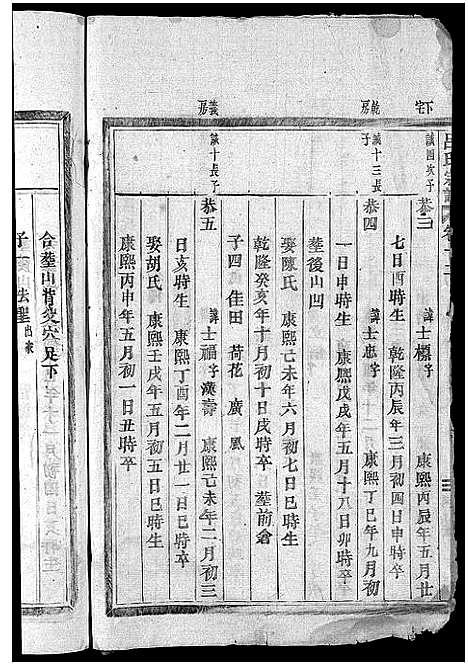 下宅
誠四次子
恭三 諱士標字 康熙丙辰年五月廿
七日酉時生 乾隆丙辰年三月初四日申時卒
乾房
誠十三長子
恭四 諱士忠字 康熙丁巳年九月初
一日申時生 康熙戊戌年五月十八日卯時卒
塟後山凹
娶陳氏 康熙己未年六月初七日巳時生
乾隆癸亥年十月初十日戌時卒 塟前倉
子四 佳田 荷花 廣 風
義房
誠十長子
恭五 諱士福字漢壽 康熙己未年二月初三
日亥時生 康熙丁酉年二月廿一日時卒
娶胡氏 康熙壬戌年五月初五日巳時生
康熙丙申年五月初一日丑時卒
合塟山背
足下
子一 法聖 出家
呂氏宗譜